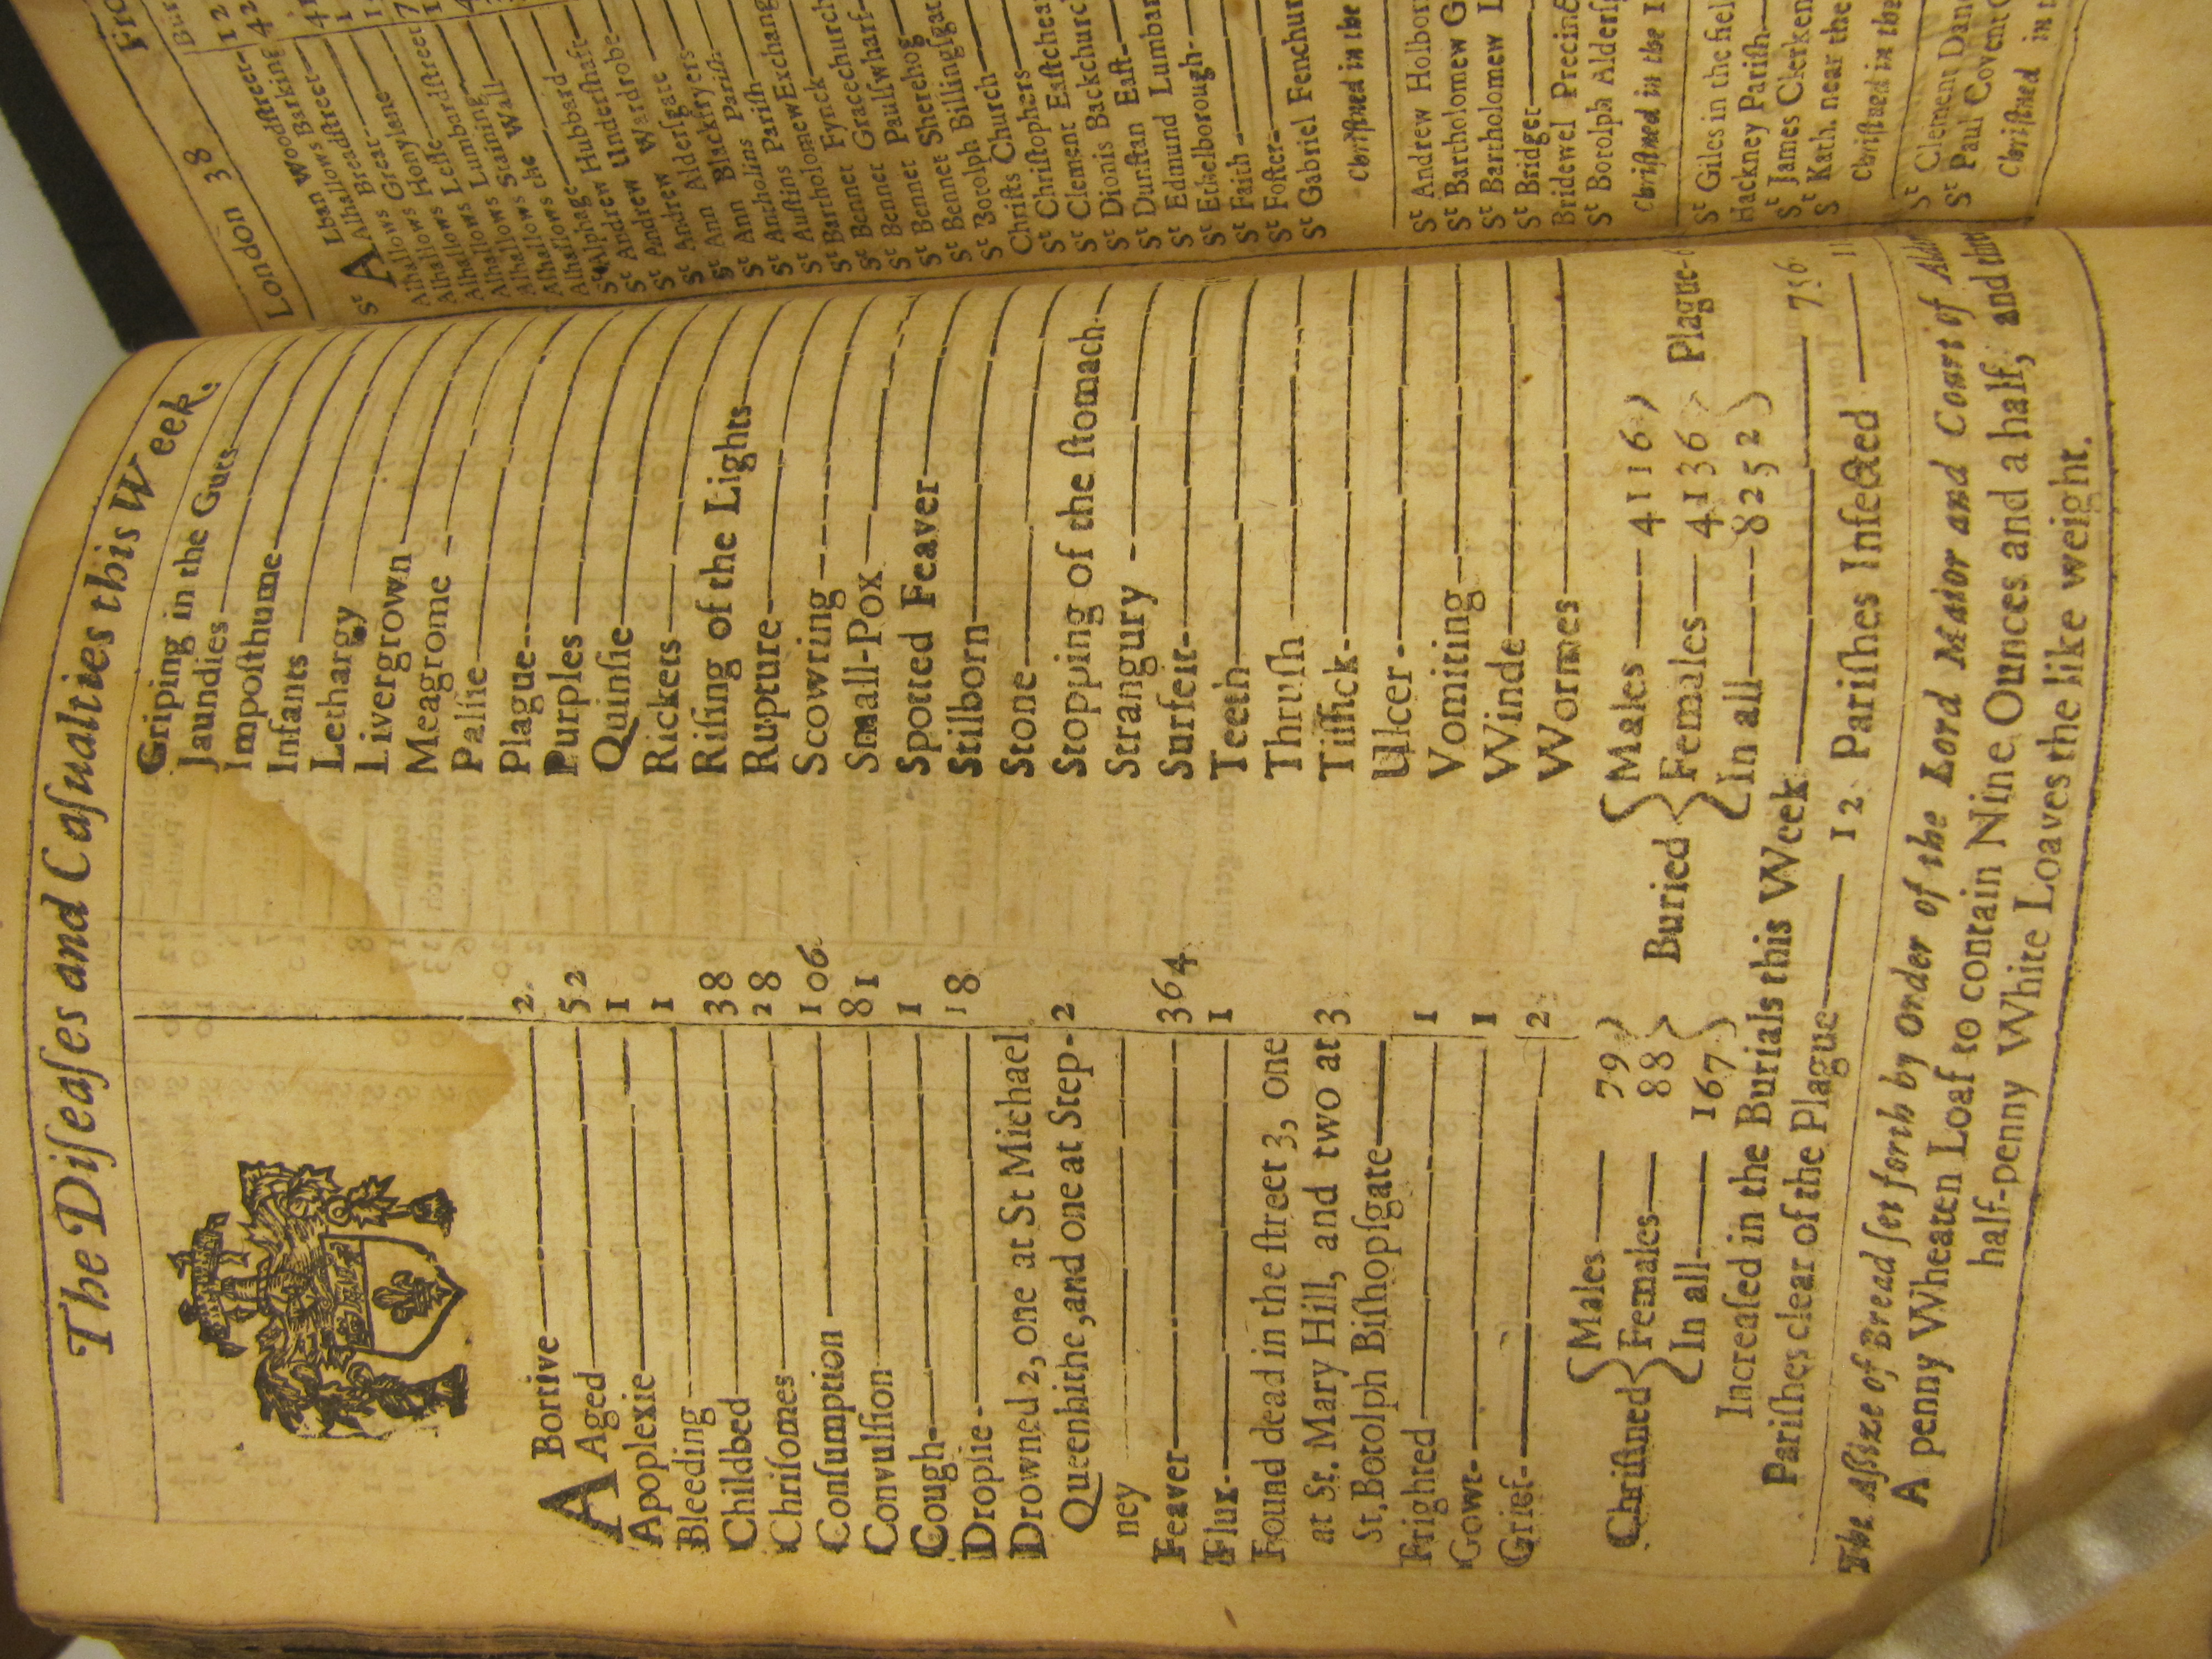 The Diſeaſes and Caſualties this Week.
A Bortive 2
Aged 52
Apoplexie 1
Bleeding 1
Childbed 38
Chriſomes 28
Conſumption 106
Convulſion 81
Cough 1
Dropſie 18
Drowned 2, one at St Michael
Queenhithe, and one at Step- 2
ney
Feaver 364
Flux 1
Found dead in the ſtreet 3, one
at St. Mary Hill, and two at 3
St, Botolph Biſhopſgate
Frighted 1
Gowt 1
Grief 2
Griping in the Guts
Jaundies
Impoſthume
Infants
Lethargy
Livergrown
Meagrome
Palſie
Plague
Purples
Quinſie
Rickets
Riſing of the Lights
Rupture
Scowring
Small-Pox
Spotted Feaver
Stilborn
Stone
Stopping of the ſtomach
Strangury
Surfeit
Teeth
Thruſh
Tiſſick
Ulcer
Vomiting
Winde
Wormes
Chriſtned Males 79
Females 88
In all 167
Buried Males 4116
Females 4136 Plague
In all 8252
Increaſed in the Burials this Week 756
Pariſhes clear of the Plague 12 Pariſhes Infected
The Aſſize of Bread ſet forth by Order of the Lord Maior and Court of
A penny Wheaten Loaf to contain Nine Ounces and a half, and
half-penny White Loaves the like weight.
London 38
St Alban Woodſtreet
Alhallows Barking
Alhallows Breadſtreet
Alhallows Great
Alhallows Honylane
Alhallows Leſſe
Alhallows Lumbardſtreet
Alhallows Staining
Alhallows the Wall
Alphage
St Andrew Hubbard
St Andrew Underſhaft
St Andrew Wardrobe
St Ann Alderſgate
St Ann Blackfryers
St Antholins Pariſh
St Auſtins Pariſh
St Bartholomew Exchang
St Bennet Fynck
St Bennet Gracechurch
St Bennet Paulſwharf
St Bennet Sherehog
St Botolph Billingſgat
Chriſts Church
St Chriſtophers
St Clement Eaſtchea
St Dionis Backchurc
St Dunſtan Eaſt
St Edmund Lumbar
St Ethelborough
St Faith
St Foſter
St Gabriel Fenchur
Chriſtned in the
St Andrew Holborn
St Bartholomew G
St Bartholomew L
St Bridget
Bridewel Precinc
St Botolph Alderſg
Chriſtned in the
St Giles in the fiel
Hackney Pariſh
St James Clerken
St Kath. near the
Chriſtned in the
St Clement Dane
St Paul Covent
Chriſtned in